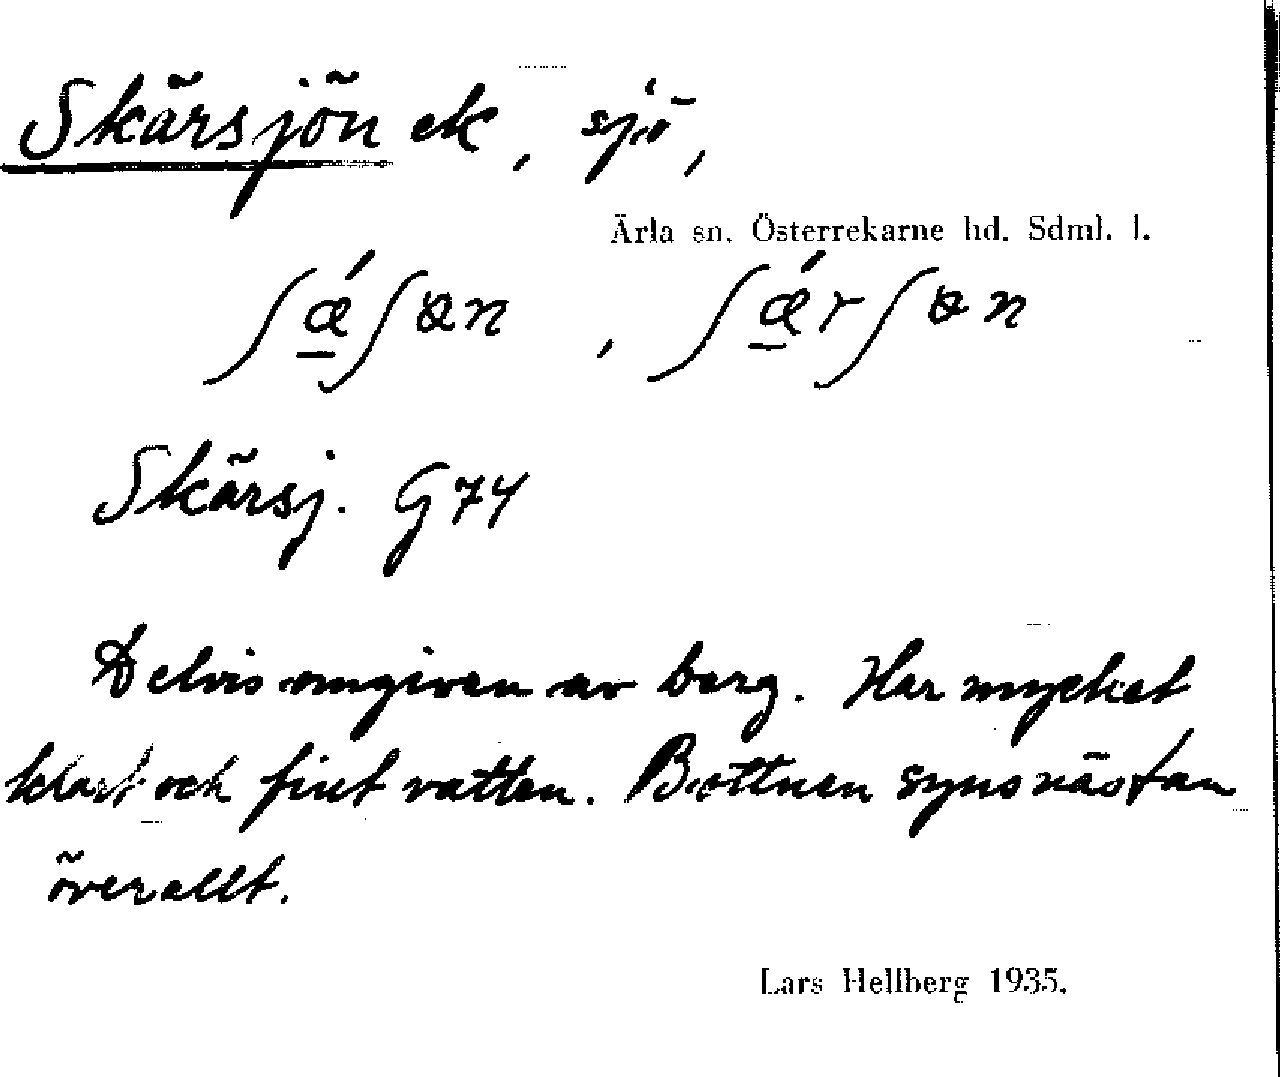 Skärsjön ek, sjö,
Ärla sn. Österrekarne hd. Sdml. l.
ʃǽ̲ʃɵn, ʃǽ̲rʃɵn
Skärsj. G74
Delvis omgiven av berg. Har mycket
klart och fint vatten. Bottnen syns nästan
överallt.
Lars Hellberg 1935.